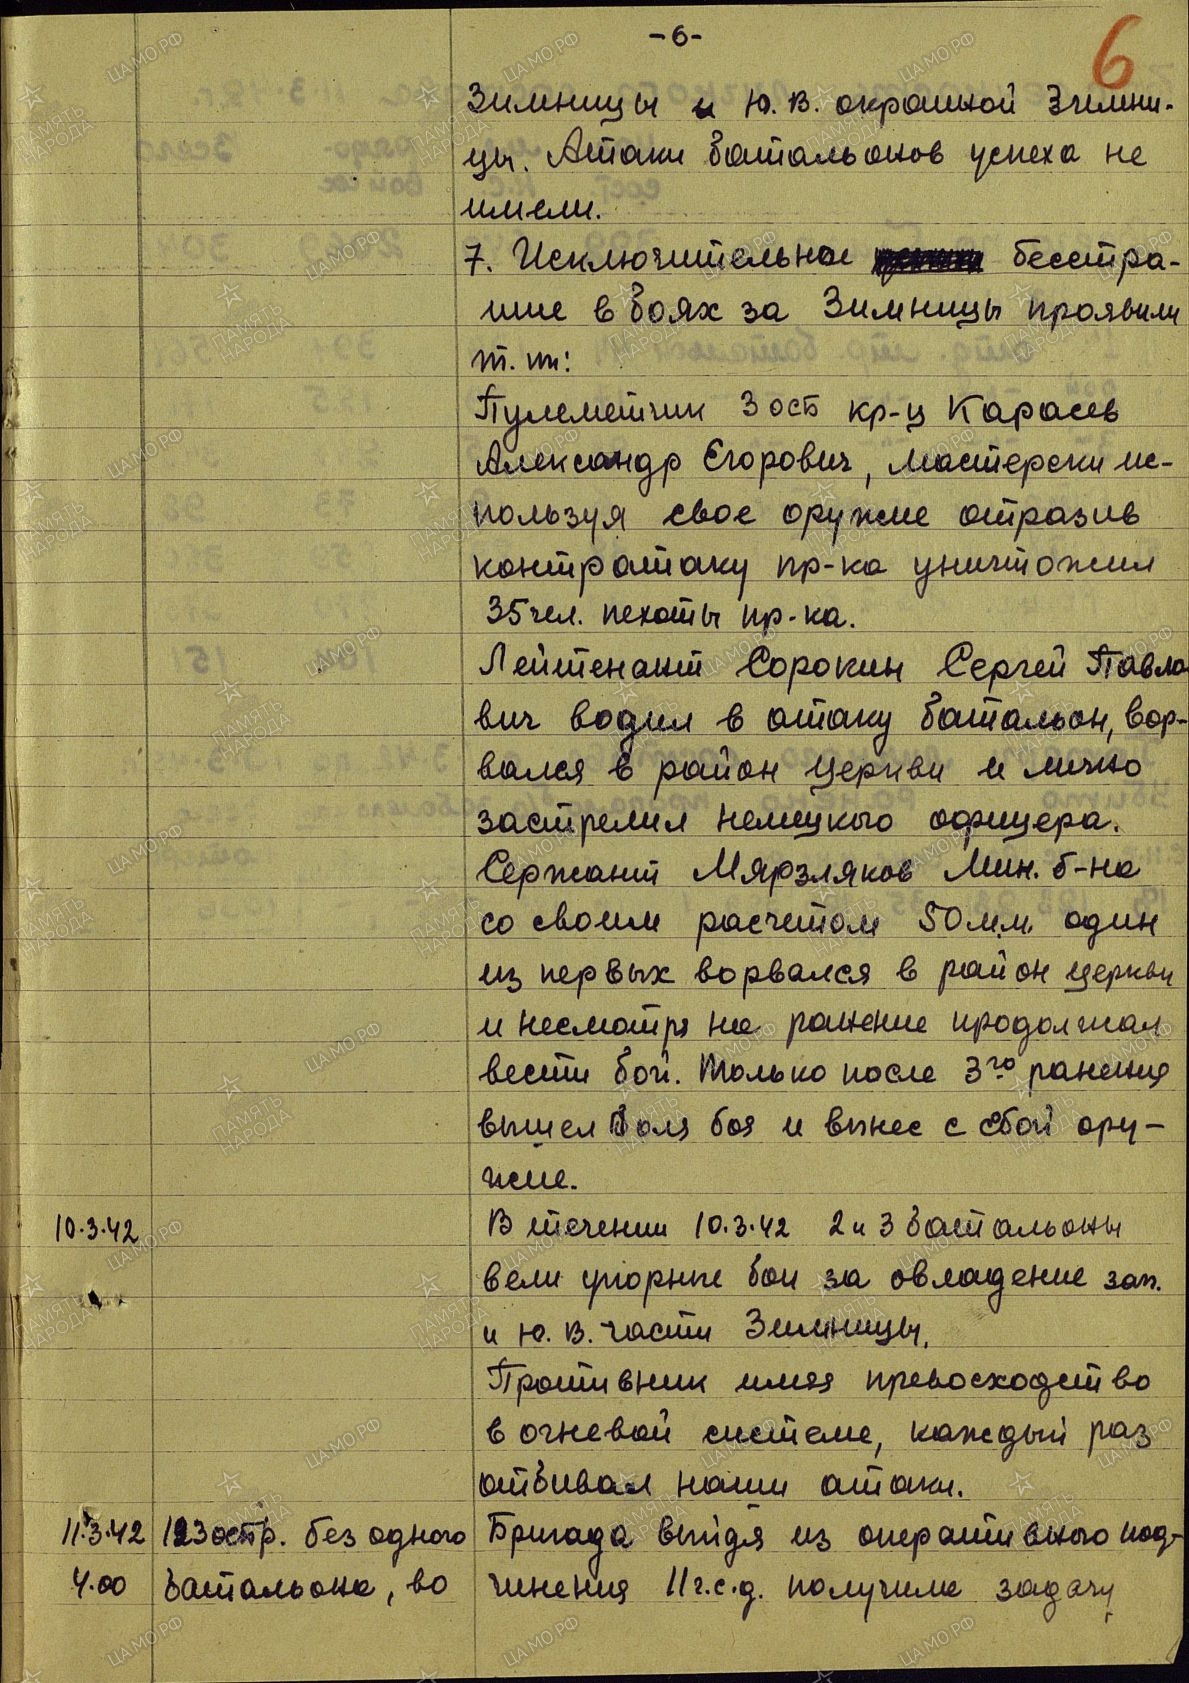 -6-
6
Зимницы и Ю.В. окраиной Зимни-
цы. Атаки батальонов успеха не
имели.
7. Исключительное бесстра-
шие в боях за Зимницы проявили
т.т:
Пулеметчик 3 осб кр-ц Карасев
Александр Егорович, мастерски ис-
пользуя свое оружие отразив
контратаку пр-ка уничтожил
35 чел. пехоты пр-ка.
Лейтенант Сорокин Сергей Павло
вич водил в атаку батальон, вор-
вался в район церкви и лично
застрелил немецкого офицера.
Сержант Мярзляков Мин. б-на
со своим расчетом 50 м.м. один
из первых ворвался в район церкви
и несмотря на ранение продолжал
вести бой. Только после 3го ранения
вышел поля боя и вынес с собой ору-
жие.
10.3.42 В течении 10.3.42 2 и 3 батальоны
вели упорные бои за овладение зап.
и Ю.В. части Зимницы.
Противник имея превосходство
в огневой системе, каждый раз
отбивал наши атаки.
11.3.42 123 остр. без одного Бригада выйдя из оперативного под-
4.00 батальона, во чинения 11 г.с.д. получила задачу